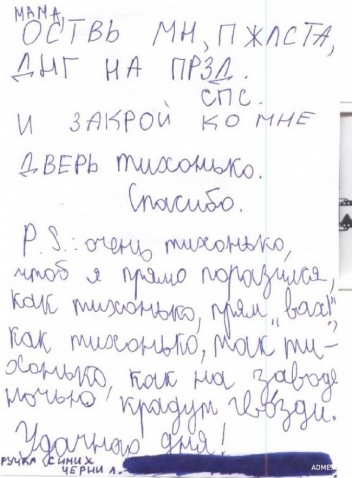 МАМА,
ОСТВЬ МН, ПЖЛСТА,
ДНГ НА ПРЗД.
СПС.
И ЗАКРОЙ КО МНЕ
ДВЕРЬ тихонько.
Спасибо.
P.S.: очень тихонько,
чтоб я прямо поразился,
как тихонько, прям „вах!”,
как тихонько, так ти-
хонько, как на заводе
ночью крадут гвозди.
Удачного дня!
РУЧКА СИНИХ
ЧЕРНИЛ.
ADME